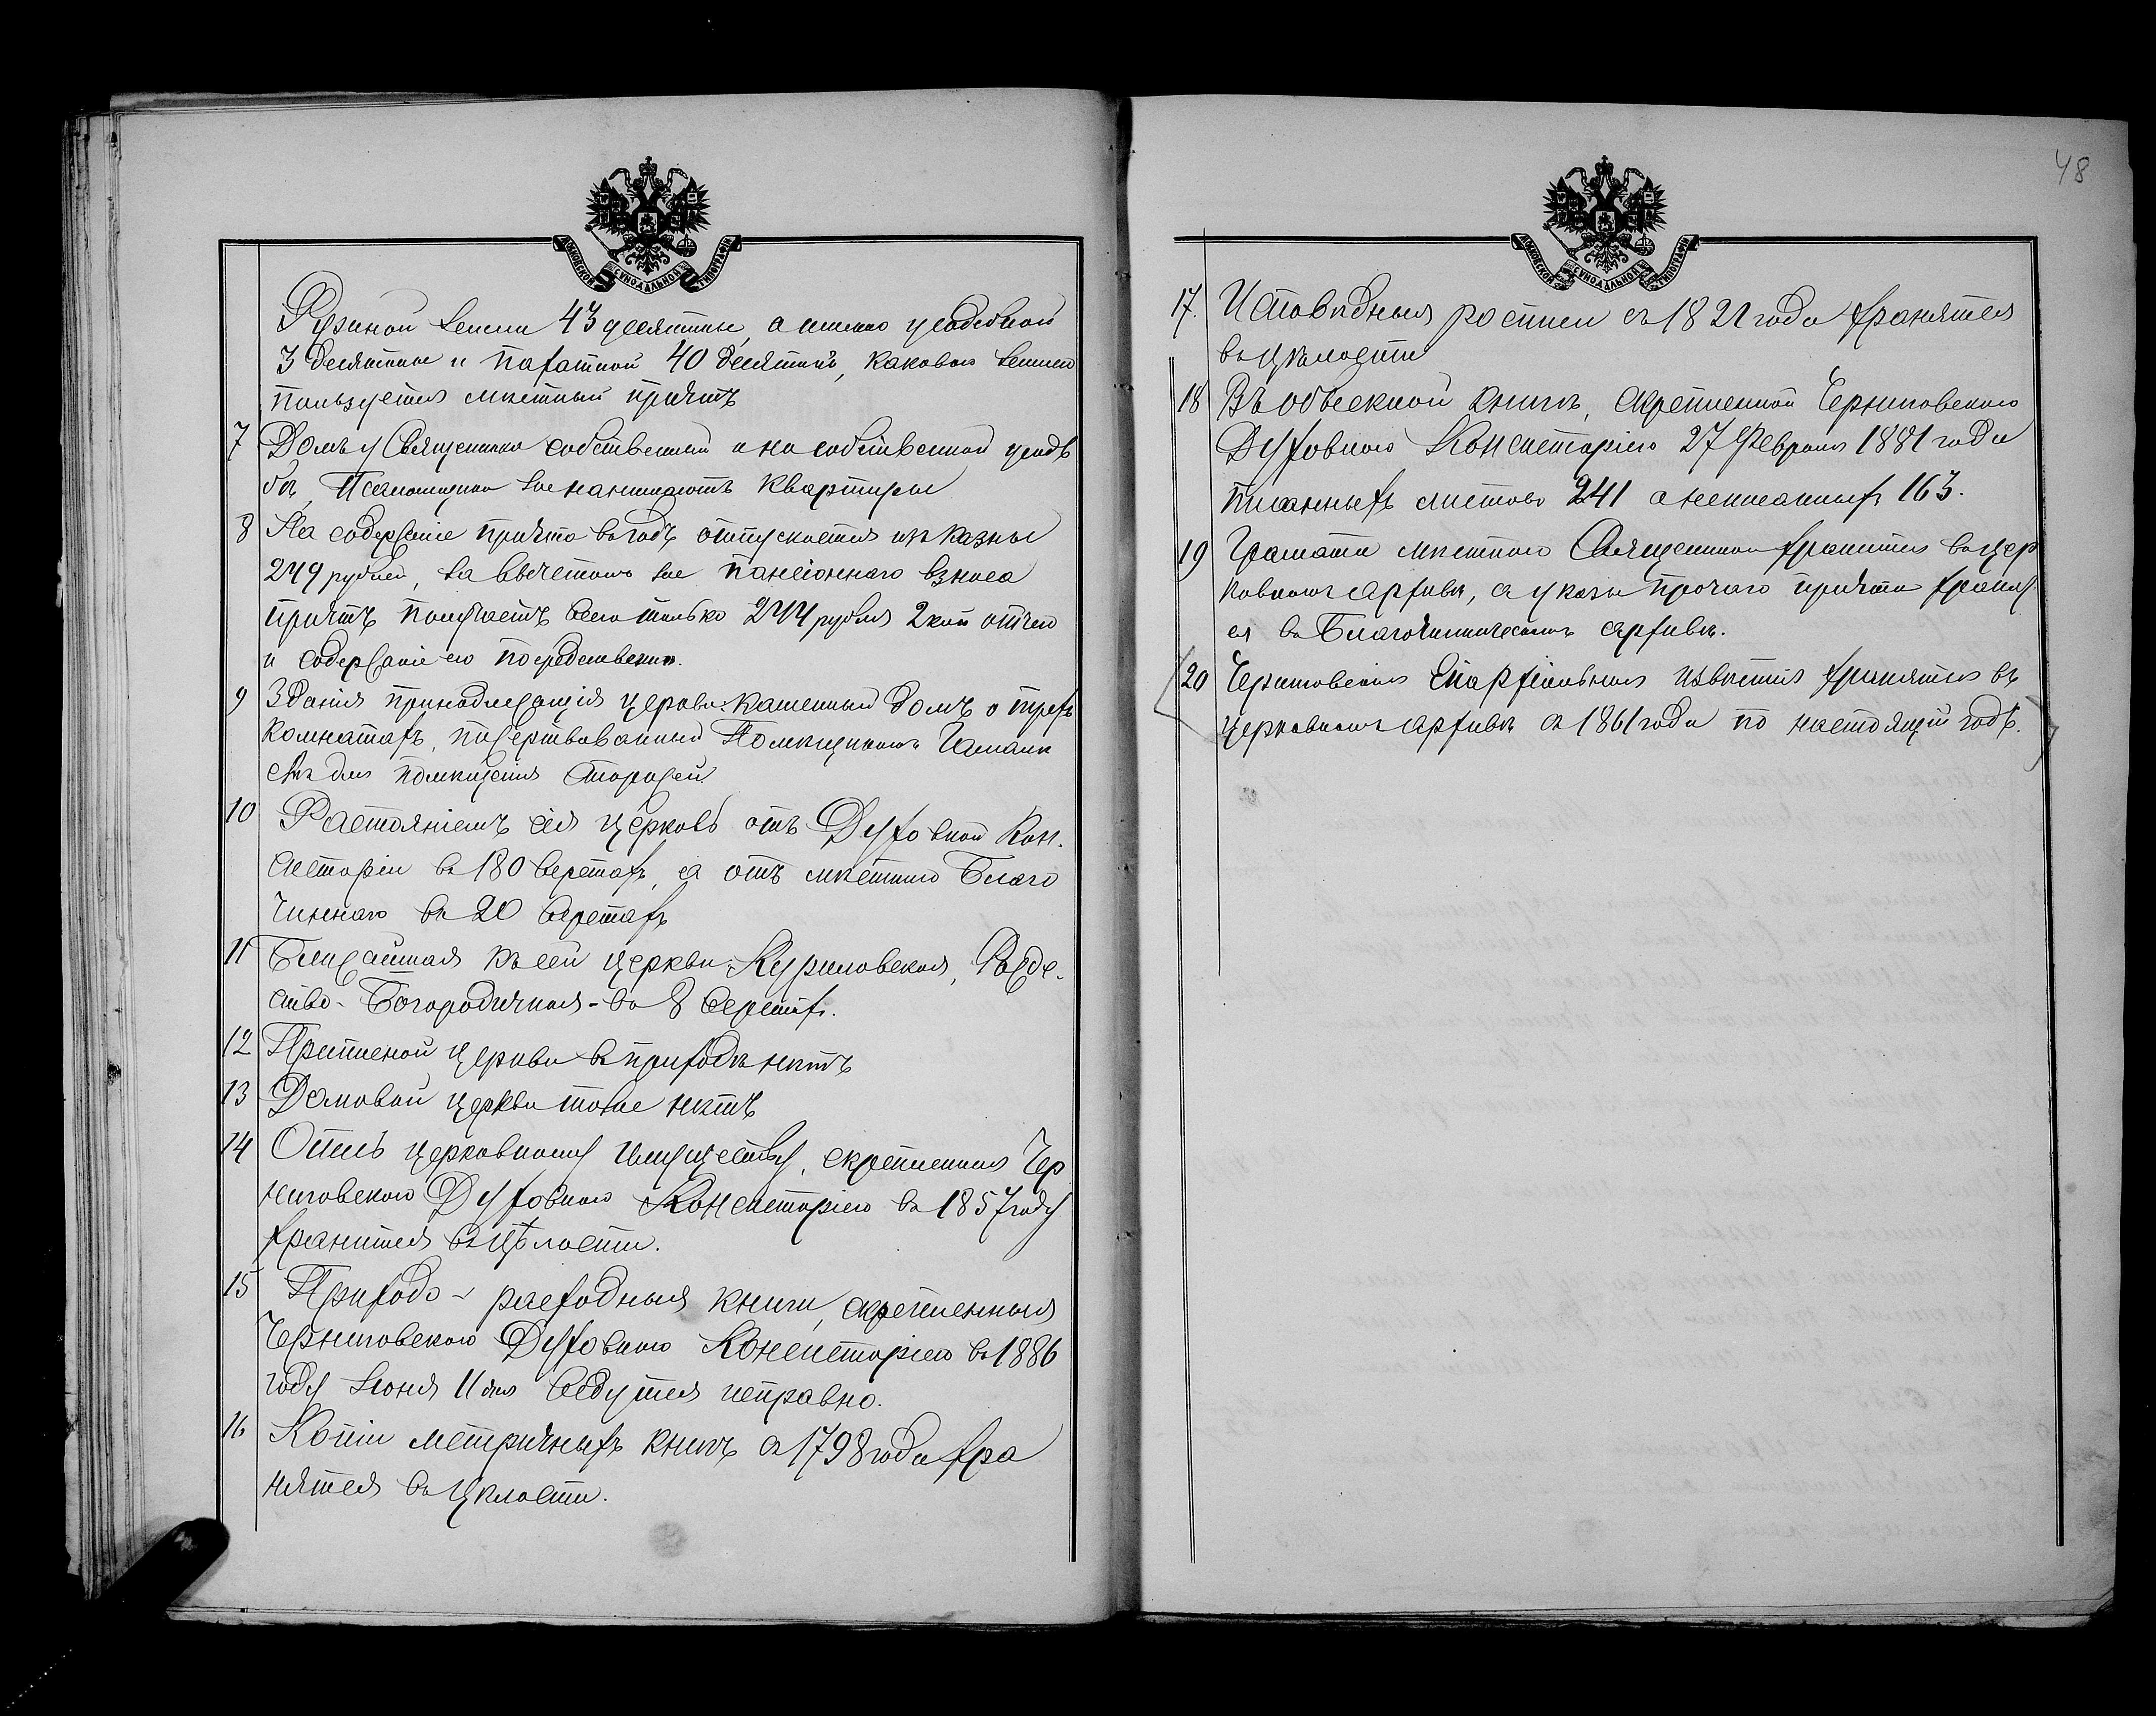 МОСКОВСКОЙ СѴНОДАЛЬНОЙ ТИПОГРАФІИ
Ружной земли 43 десятины, а именно усадебной
3 десятины и пахатной 40 десятинъ, каковою землею
пользуется мѣстный причтъ
7 Домъ у Священника собственный и на собственной усадь
бѣ, Псаломщики же нанимаютъ квартиры
8 На содержаніе причта въ годъ отпускается изъ казны
249 рублей, за вычетомъ же пансіоннаго взноса
причтъ получаетъ всего только 244 рубля 2 коп отчего
и содержаніе его посредственно.
9 Зданія принадлежащія церкви: каменный домъ о трехъ
комнатахъ, пожертвованный Помѣщикомъ
для помѣщенія Сторожей
10 Растояніемъ сія церковь отъ Духовной Кон-
систоріи въ 180 верстахъ, а отъ мѣстнаго Благо
чиннаго въ 20 верстахъ
11 Ближайшая къ сей церкви: Куриловская, Рожде-
ство-Богородичная - въ 8 верстахъ.
12 Приписной церкви въ приходѣ нѣтъ
13 Домовой церкви тоже нѣтъ
14 Опись церковному имуществу, скрепленная Чер
ниговскою Духовною Консисторіею въ 1857 году
хранится въ цѣлости.
15 Приходо-расходныя книги, скрепленныя
Черниговскою Духовною Консисторіею въ 1886
году Іюня 11 дня ведутся исправно.
16 Копіи метричныхъ книгъ съ 1798 года хра
нятся въ цѣлости.
48
МОСКОВСКОЙ СѴНОДАЛЬНОЙ ТИПОГРАФІИ
17. Исповѣдныя росписи съ 1821 года хранятся
въ цѣлости
18 Въ обыскной книгѣ, скрепленной Черниговскою
Духовною Консисторіею 27 Февраля 1881 года
писанныхъ листовъ 241 а неписанныхъ 163.
19 Грамата мѣстнаго Священника хранится въ цер
ковномъ архивѣ, а указы прочаго причта
ся въ Благочинническомъ архивѣ.
20 Черниговскія Епархіальныя извѣстія хранятся въ
церковномъ архивѣ съ 1861 года по настоящій годъ.